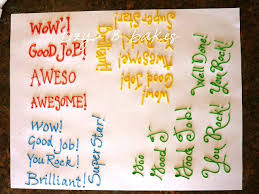 WOW!
GOOD JOB!
AWESO
AWESOME!
Wow!
Good Job!
You Rock!
Brilliant!
Super Star!
Brilliant!
Wow!
Good Job!
Awesome!
Awesome
Super Star!
Goo
Good J
Good Job!
You Rock!
Well Done!
You Rock!
B bakes